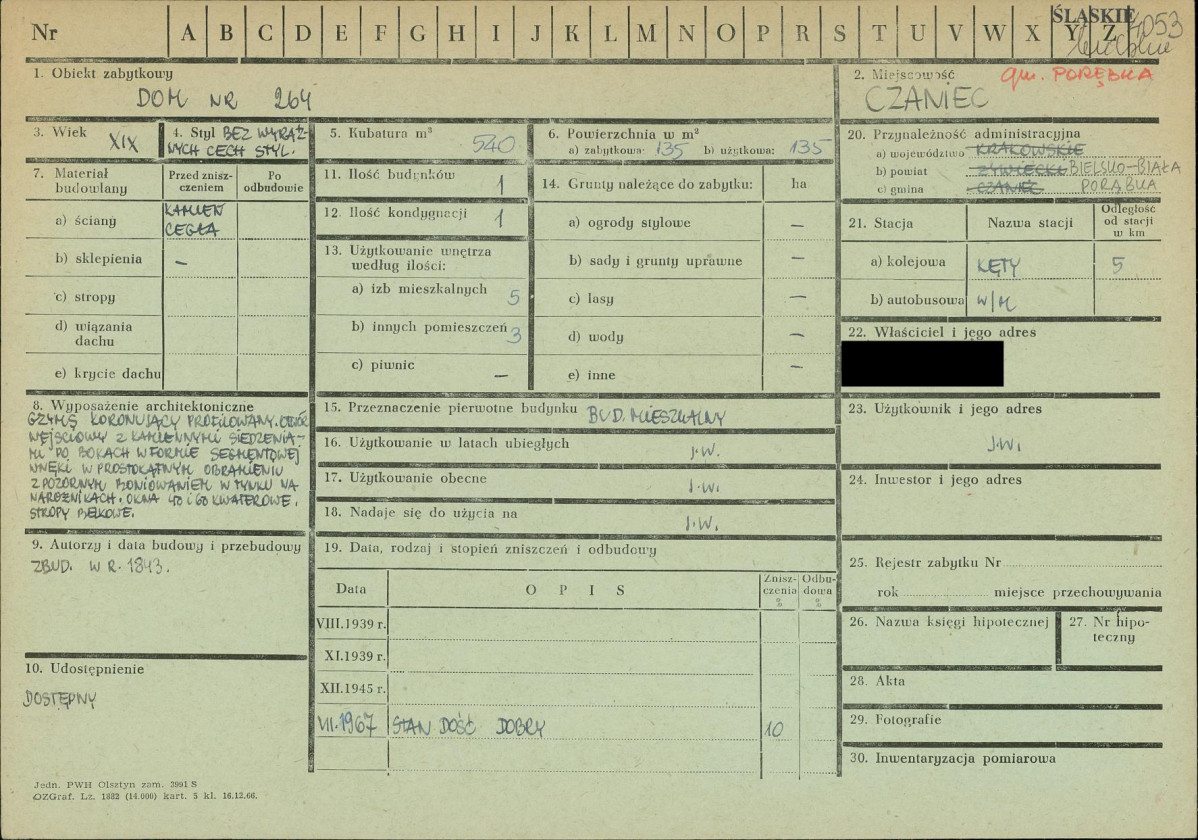 Nr A B C D E F G H I J K L M N O P R S T U V W X Y Z
ŚLĄSKIE 4053
1. Obiekt zabytkowy
DOM NR 264
2. Miejscowość gm. PORĘBKA
CZANIEC
3. Wiek XIX
4. Styl BEZ WYRAŹ-
NYCH CECH STYL.
5. Kubatura m³ 540
6. Powierzchnia w m²
a) zabytkowa: 135 b) użytkowa: 135
7. Materiał budowlany
Przed znisz-
czeniem
Po
odbudowie
a) ściany KAMIEŃ
CEGŁA
b) sklepienia —
c) stropy
d) wiązania
dachu
e) krycie dachu
8. Wyposażenie architektoniczne
GZYMS KORONUJĄCY PROFILOWANY. OTWÓR
WEJŚCIOWY Z KAMIENNYMI SIEDZENIA-
MI PO BOKACH W FORMIE SEGMENTOWEJ
WNĘKI W PROSTOKĄTNYM OBRAMIENIU
Z POZORNYM BONIOWANIEM W TYNKU NA
NAROŻNIKACH. OKNA 4O i 6O KWATEROWE.
STROPY BELKOWE.
9. Autorzy i data budowy i przebudowy
ZBUD. W R. 1843.
10. Udostępnienie
DOSTĘPNY
11. Ilość budynków 1
12. Ilość kondygnacji 1
13. Użytkowanie wnętrza
według ilości:
a) izb mieszkalnych 5
b) innych pomieszczeń 3
c) piwnic —
14. Grunty należące do zabytku: ha
a) ogrody stylowe —
b) sady i grunty uprawne —
c) lasy —
d) wody —
e) inne —
15. Przeznaczenie pierwotne budynku BUD. MIESZKALNY
16. Użytkowanie w latach ubiegłych J.W.
17. Użytkowanie obecne J.W.
18. Nadaje się do użycia na J.W.
19. Data, rodzaj i stopień zniszczeń i odbudowy
Data O P I S Znisz-
czenia
% Odbu-
dowa
%
VIII.1939 r.
XI.1939 r.
XII.1945 r.
VII.1967 STAN DOŚĆ DOBRY 10
20. Przynależność administracyjna
a) województwo KRAKOWSKIE
b) powiat ŻYWIECKI BIELSKO-BIAŁA
c) gmina CZANIEC PORĄBKA
21. Stacja Nazwa stacji Odległość
od stacji
w km
a) kolejowa KĘTY 5
b) autobusowa W/M
22. Właściciel i jego adres
23. Użytkownik i jego adres
J.W.
24. Inwestor i jego adres
25. Rejestr zabytku Nr
rok miejsce przechowywania
26. Nazwa księgi hipotecznej
27. Nr hipo-
teczny
28. Akta
29. Fotografie
30. Inwentaryzacja pomiarowa
Jedn. PWH Olsztyn zam. 2991 S
OZGraf. Lz. 1882 (14.000) kart. 5 kl. 16.12.66.